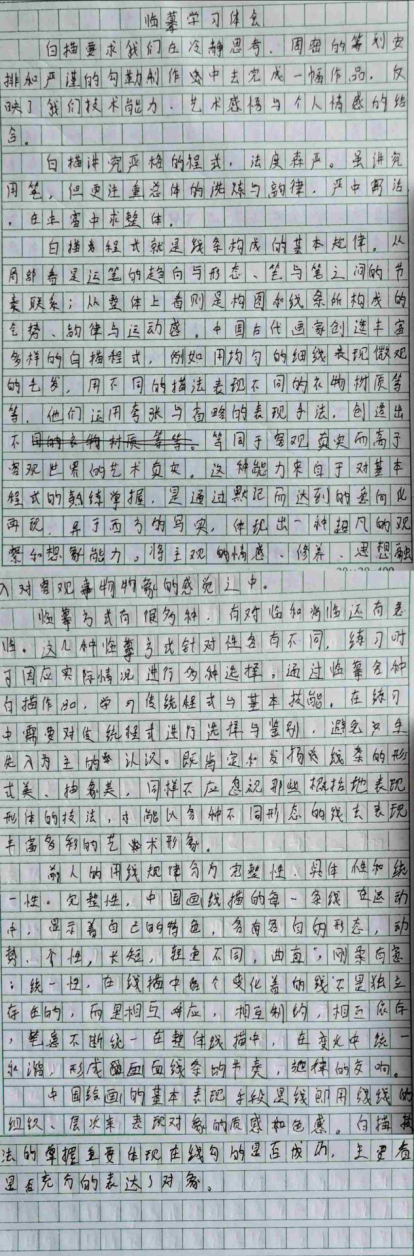 临摹学习体会
白描要求我们在冷静思考、周密的筹划安
排和严谨的勾勒制作当中去完成一幅作品，反
映了我们技术能力、艺术感悟与个人情感的结
合。
白描讲究严格的程式，法度森严。虽讲究
用笔，但更注重总体的洗炼与韵律，严中寓法
，在丰富中求整体。
白描者程式就是线条构成的基本规律，从
局部看是运笔的趋向与形态、笔与笔之间的节
奏联系；从整体上看则是构图和线条所构成的
气势、韵律与运动感。中国古代画家创造丰富
多样的白描程式，例如用均匀的细线表现微观
的毛发，用不同的描法表现不同的衣物材质等
等，他们运用夸张与省略的表现手法，创造出
不同的衣物材质等等。等同于客观真实而高于
客观世界的艺术真实。这种能力来自于对基本
程式的熟练掌握，是通过默记而达到的意向化
再现，异于西方的写实，体现出一种超凡的观
察和想象能力，将主观的情感、修养、思想融
入对客观事物物象的感觉之中。
临摹方式有很多种，有对临和背临还有意
临。这几种临摹方式针对性各有不同，练习时
可因应实际情况进行多种选择。通过临摹各种
白描作品，学习传统程式与基本技能。在练习
中需要对传统程式进行选择与鉴别，避免产生
先入为主的认识。既肯定和发扬线条的形
式美、抽象美，同样不应忽视那些概括地表现
形体的技法，才能以各种不同形态的线去表现
丰富多彩的艺术形象。
前人的用线规律分为完整性、具体性和统
一性。完整性，中国画线描的每一条线在运动
中，显示着自己的特色，各有各自的形态，动
势、个性，长短，轻重不同，曲直，刚柔有容
；统一性，在线描中各个变化着的线不是独立
存在的，而是相互呼应，相互制约，相互依存
，笔意不断统一在整体线描中，在变化中统一
和谐，形成画面线条的节奏，旋律的交响。
中国绘画的基本表现手段是线即用线线的
组织、层次来表现对象的质感和色感。白描技
法的掌握主要体现在线勾的是否成功，主要看
是否充分的表达了对象。